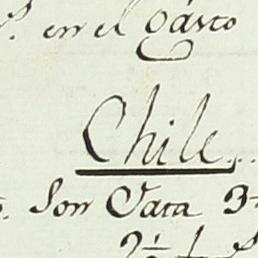 en el Gasto
Chile..
Son Vara 3